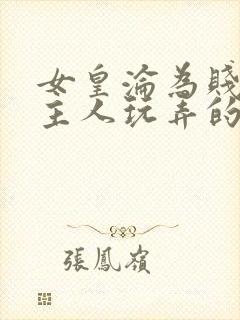 女皇淪為賤
主人玩弄的
張鳳嶺